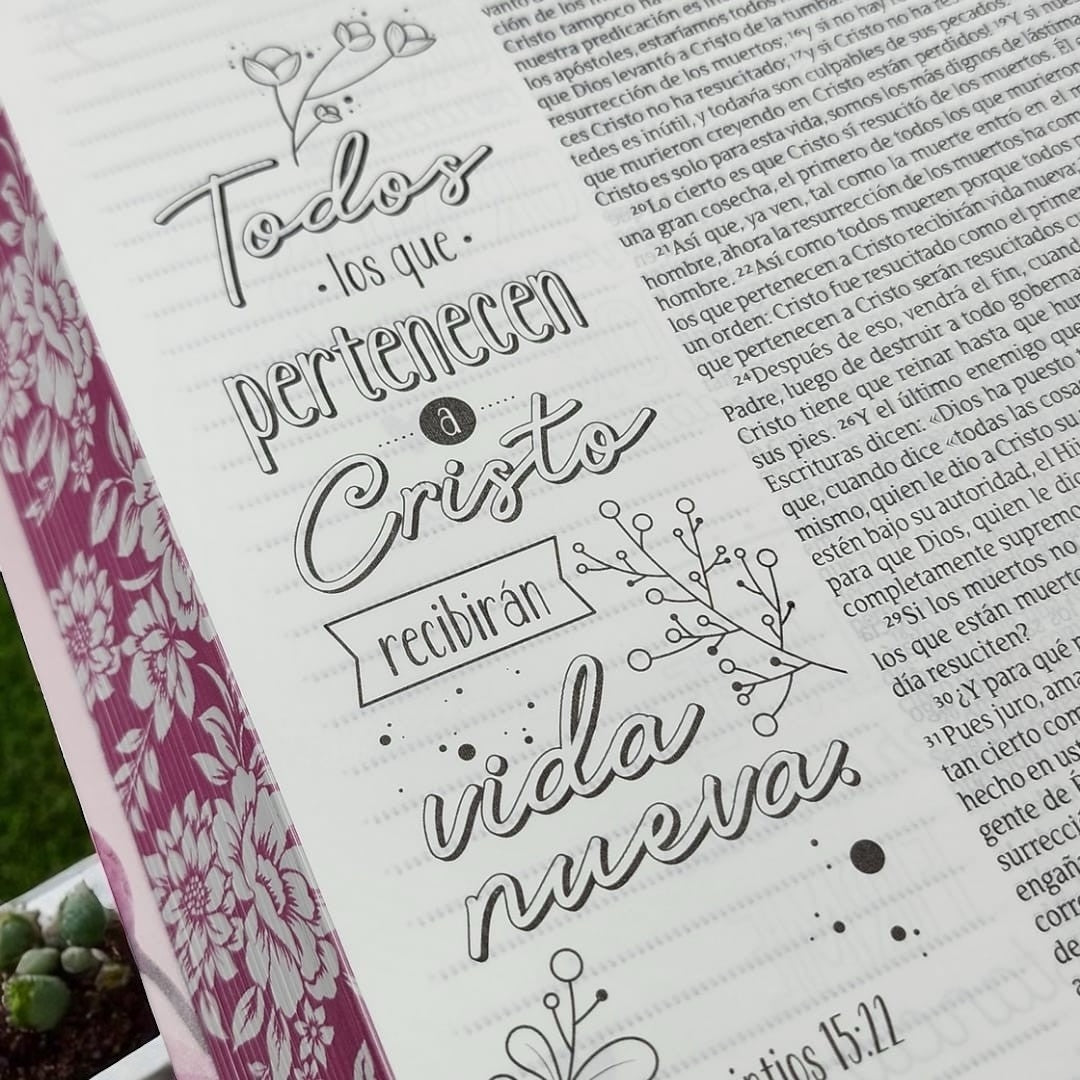 Todos
• los que •
pertenecen
a
Cristo
recibirán
vida
nueva.
15:22
Cristo tampoco ha
nuestra predicación es
los apóstoles, estaríamos todos
que Dios levantó a Cristo de la tumba
resurrección de los muertos; ¹⁶y si no hay
ces Cristo no ha resucitado; ¹⁷y si Cristo no ha
tedes es inútil, y todavía son culpables de sus pecados.
que murieron creyendo en Cristo están perdidos! ¹⁹Y si
Cristo es solo para esta vida, somos los más dignos de lástima
²⁰Lo cierto es que Cristo sí resucitó de los muertos. Él
una gran cosecha, el primero de todos los que murieron
²¹Así que, ya ven, tal como la muerte entró en el
hombre, ahora la resurrección de los muertos ha
hombre. ²²Así como todos mueren porque todos
los que pertenecen a Cristo recibirán vida nueva;
un orden: Cristo fue resucitado como el
que pertenecen a Cristo serán resucitados
²⁴Después de eso, vendrá el fin, cuando
Padre, luego de destruir a todo
Cristo tiene que reinar hasta que
sus pies. ²⁶Y el último enemigo que
Escrituras dicen: «Dios ha puesto
que, cuando dice «todas las cosas
mismo, quien le dio a Cristo su
estén bajo su autoridad, el
para que Dios, quien le
completamente supremo
²⁹Si los muertos no
los que están
día resuciten?
³⁰¿Y para qué
³¹Pues juro,
tan cierto
hecho en
gente de